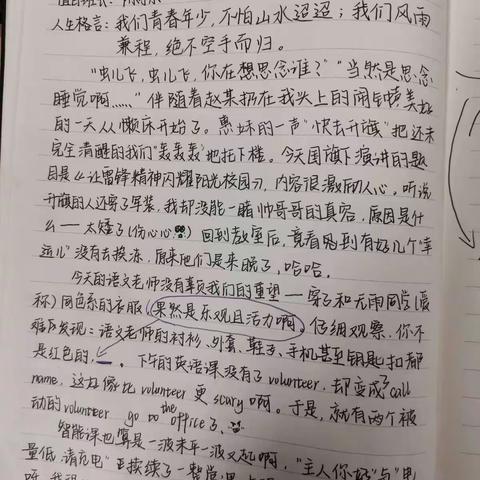 人生格言：我们青春年少，不怕山水迢迢；我们风雨
兼程，绝不空手而归。
"虫儿飞，虫儿飞，你在想思念谁？""当然是思念
睡觉啊……"伴随着赵某扔在我头上的闹钟美好
的一天从懒床开始了。惠妹的一声"快去升旗"把还未
完全清醒的我们"轰轰轰"地托下楼。今天国旗下演讲的题
目是《让雷锋精神闪耀阳光校园》，内容很激励人心。听说
升旗的人还穿了军装，我却没能一睹帅哥哥的真容，原因是什
么——太矮了(伤心心)回到教室后，竟看见到有好几个"幸
运儿"没有去操场，原来他们是来晚了，哈哈。
今天的语文老师没有辜负我们的重望——穿了和无雨同学(爱
称)同色系的衣服，果然是乐观且活力啊。仔细观察，你不
难发现：语文老师的衬衫、外套、鞋子、手机甚至钥匙扣都
是红色的。下午的英语课没有了volunteer，却变成了call
name，这好像比volunteer更scary啊。于是，就有两个被
动的volunteer go to the office了。
智能课也算是一波未平一波又起啊，"主人你好"与"电
量低，请充电"正接续了一整堂